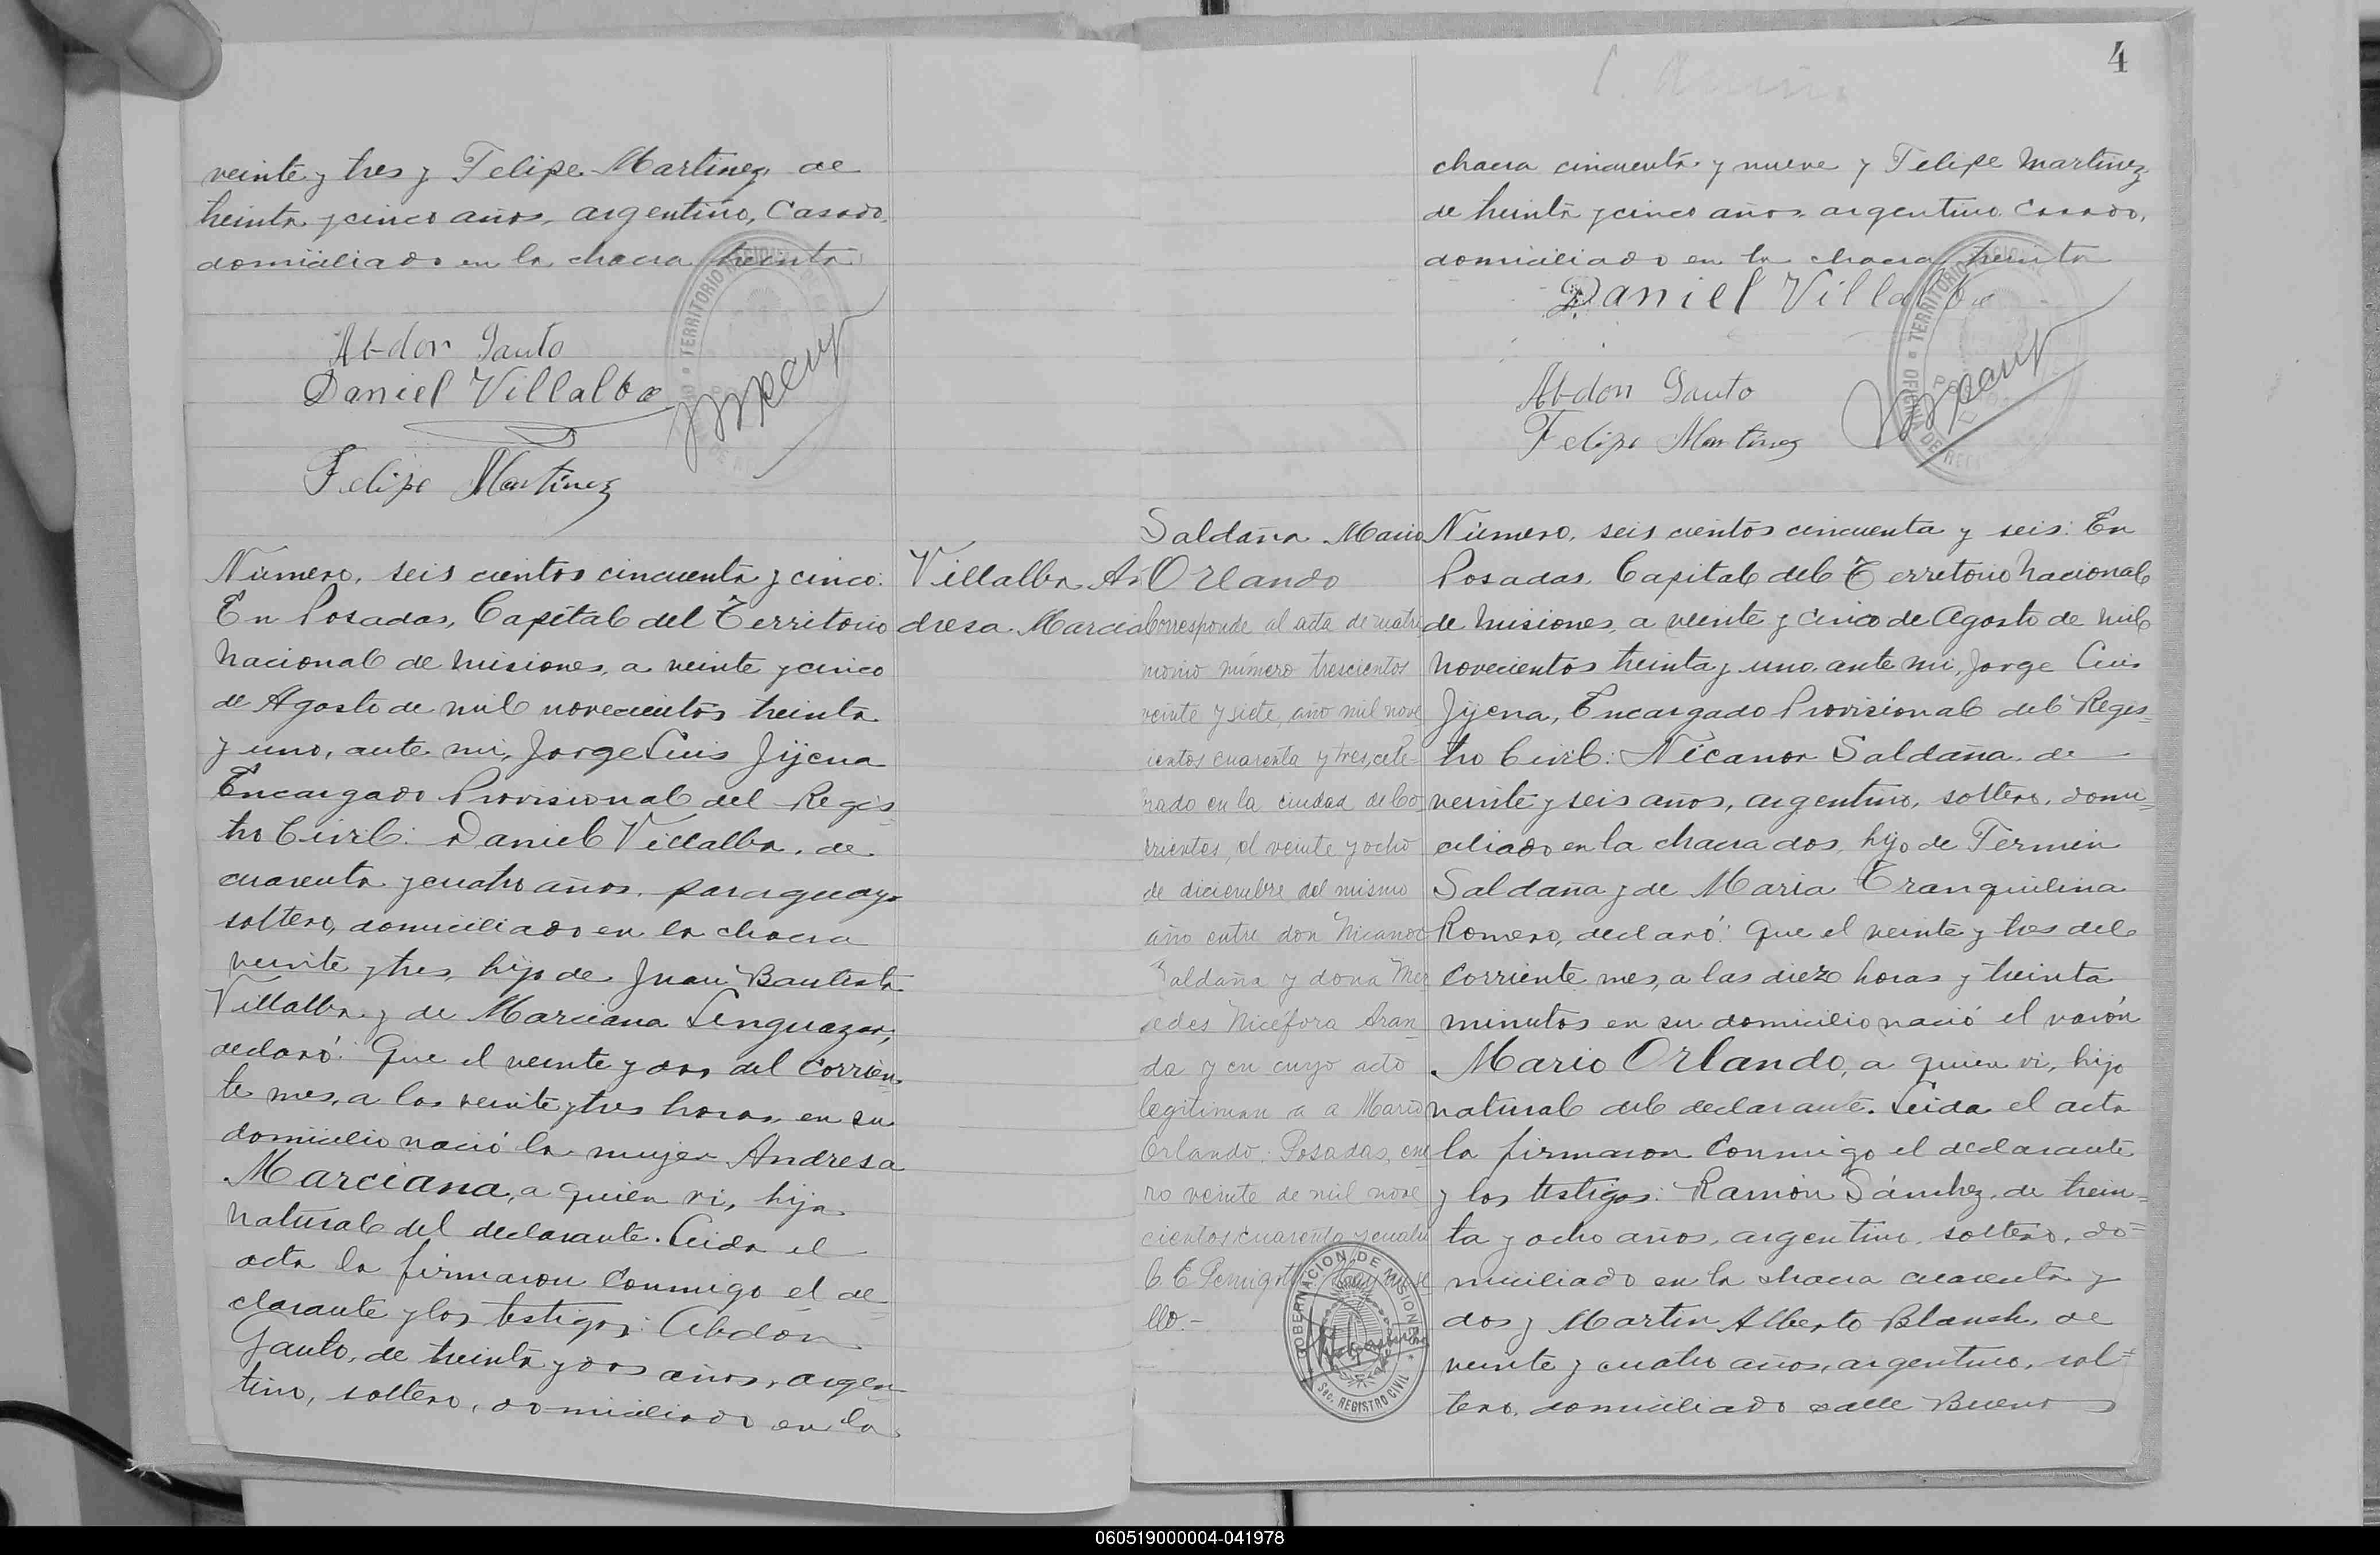 veinte y tres y Felipe Martinez, de
treinta y cinco años, argentino, casado,
domiciliado en la chacra treinta
Abdon Gauto
Daniel Villalba
Felipe Martinez
Número, seis cientos cincuenta y cinco:
En Posadas, Capital del Territorio
Nacional de Misiones, a veinte y cinco
de Agosto de mil novecientos treinta
y uno, ante mi, Jorge Luis Jijena
Encargado Provisional del Regis
tro Civil: Daniel Villalba, de
cuarenta y cuatro años, paraguayo
soltero, domiciliado en la chacra
veinte y tres, hijo de Juan Bautista
Villalba y de Marciana Lenguazar,
declaró: Que el veinte y dos del corrien-
te mes, a las veinte y tres horas, en su
domicilio nació la mujer Andresa
Marciana, a quien vi, hija
natural del declarante. Leida el
acta la firmaron conmigo el de-
clarante y los testigos: Abdon
Gauto, de treinta y dos años, argen-
tino, soltero, domiciliado en la
Villalba An
dresa Marcia
4
chacra cincuenta y nueve y Felipe Martinez
de treinta y cinco años argentino casado,
domiciliado en la chacra treinta
Daniel Villalba
Abdon Gauto
Felipe Martinez
TERRITORIO
Saldaña Mario
Orlando
Corresponde al acta de matri
monio número trescientos
veinte y siete, año mil nove
cientos cuarenta y tres, cele-
brado en la ciudad de Co
rrientes, el veinte y ocho
de diciembre del mismo
año entre don Nicanor
Saldaña y doña Mer
sedes Nicéfora Aran-
da y en cuyo acto
legitiman a a Mario
Orlando. Posadas, ene
ro veinte de mil nove
cientos cuarenta y cuatro
llo.-
GOBERNACION DE MISIONES
Sec. REGISTRO CIVIL
Número, seis cientos cincuenta y seis: En
Posadas, Capital del Territorio Nacional
de Misiones, a veinte y cinco de Agosto de mil
novecientos treinta y uno, ante mi, Jorge Luis
Jijena, Encargado Provisional del Regis=
tro Civil: Nicanor Saldaña, de
veinte y seis años, argentino, soltero, domi=
ciliado en la chacra dos, hijo de Fermin
Saldaña y de Maria Tranquilina
Romero, declaró: Que el veinte y tres del
corriente mes, a las diez horas y treinta
minutos en su domicilio nació el varón
Mario Orlando, a quien vi, hijo
natural del declarante. Leida el acta
la firmaron conmigo el declarante
y los testigos: Ramón Sánchez, de trein=
ta y ocho años, argentino, soltero, do=
miciliado en la chacra cuarenta y
dos y Martin Alberto Blanch, de
veinte y cuatro años, argentino, sol=
tero, domiciliado calle Bueno
060519000004-041978